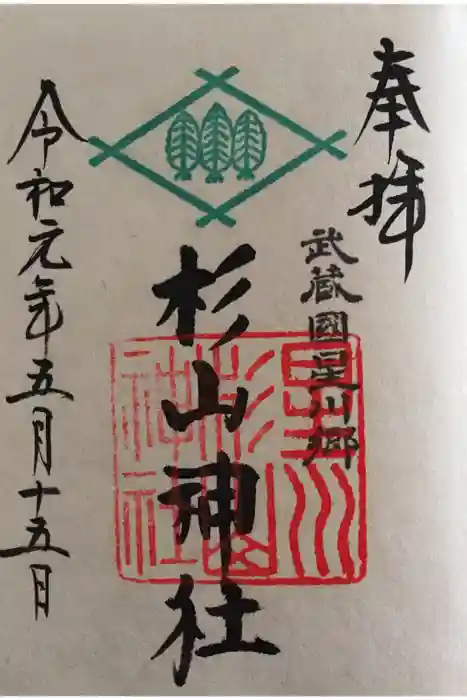 奉拝
武蔵國星川郷
杉山神社
星川
杉山
神社
令和元年五月十五日